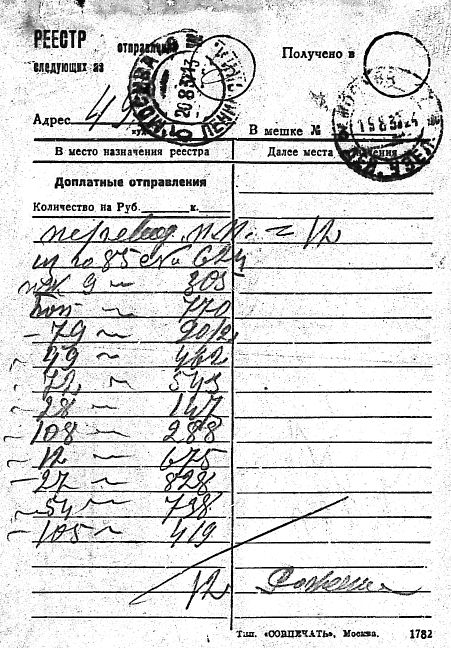 РЕЕСТР отправлений
следующих за
Получено в
МОСКВА
20 8 37 13
Адрес 49
В мешке №
19 8 37 24
УЗЕЛ
В место назначения реестра
Далее места
Доплатные отправления
Количество на Руб. к.
перевод. п.п. = 12
из 10 85 с № 624
9 ~ 305
770
- 79 ~ 2012
~ 49 ~ 462
~ 72 ~ 543
- 28 ~ 147
~ 108 ~ 288
~ 12 ~ 675
- 27 ~ 828
~ 54 ~ 738
~ 105 ~ 419
12
Тип. «СОВПЕЧАТЬ», Москва. 1782